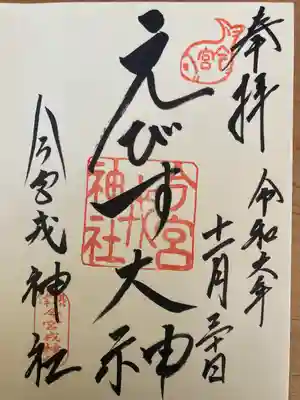 奉拝
令和六年
十一月三十日
えびす大神
今宮戎神社
今宮戎神社
今宮